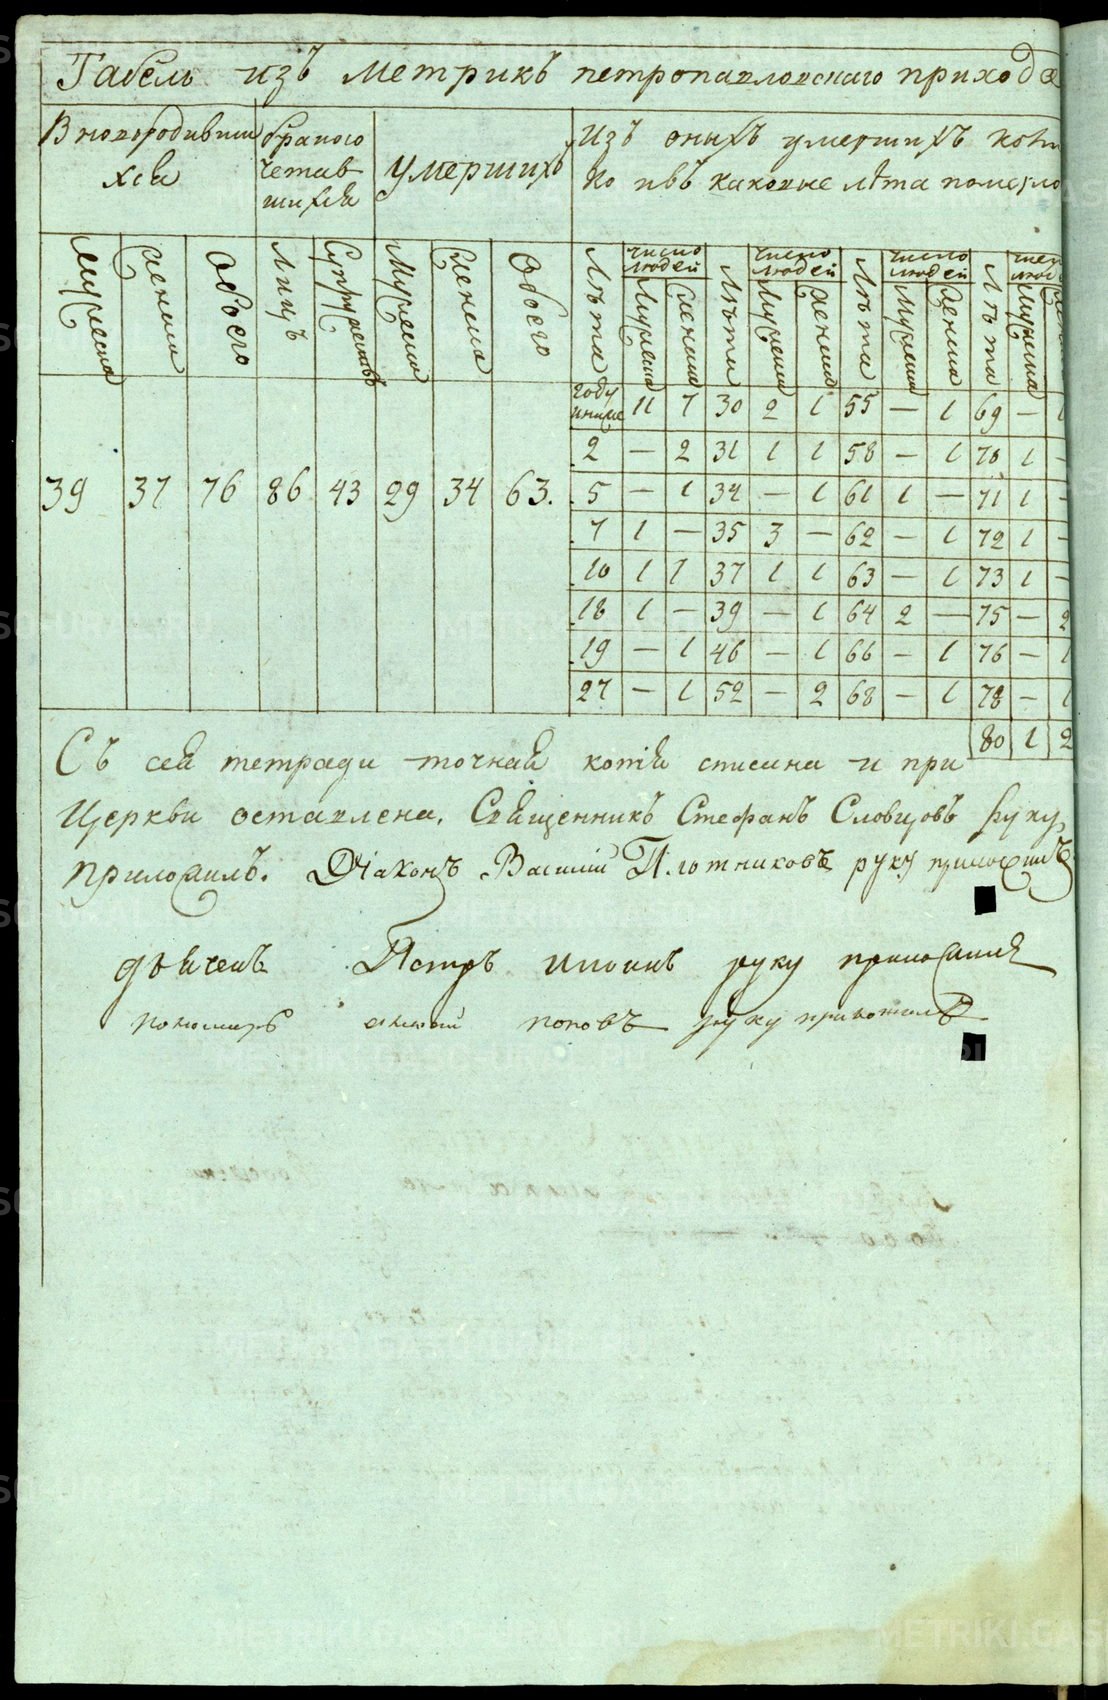 Табель изъ метрикъ петропавловскаго прихода
Вновородивши
хся
бракого
четав
шихся
умершихъ
Изъ оныхъ умершихъ кол
ко ивъ каковые лѣта померло
мужеска женска обоего лицъ супружествъ мужеска женска обоего лѣта число людей мужеска женска лѣта число людей мужеска женска лѣта число людей мужеска женска лѣта мужеска
году
и ниже 11 7 30 2 1 55 — 1 69 — 1
2 — 2 31 1 1 58 — 1 70 1 —
39 37 76 86 43 29 34 63. 5 — 1 34 — 1 61 1 — 71 1 —
7 1 — 35 3 — 62 — 1 72 1 —
10 1 1 37 1 1 63 — 1 73 1 —
18 1 — 39 — 1 64 2 — 75 — 2
19 — 1 46 — 1 66 — 1 76 — 1
27 — 1 52 — 2 68 — 1 78 — 1
80 1 2
Съ сей тетради точная копія списана и при
Церкви оставлена. Священникъ Стефанъ Словцовъ руку
приложилъ. Діаконъ Василий Плотниковъ руку приложилъ
дьячекъ Петръ руку приложилъ
пономарь поповъ руку приложилъ
METRIKI.GASO-URAL.RU